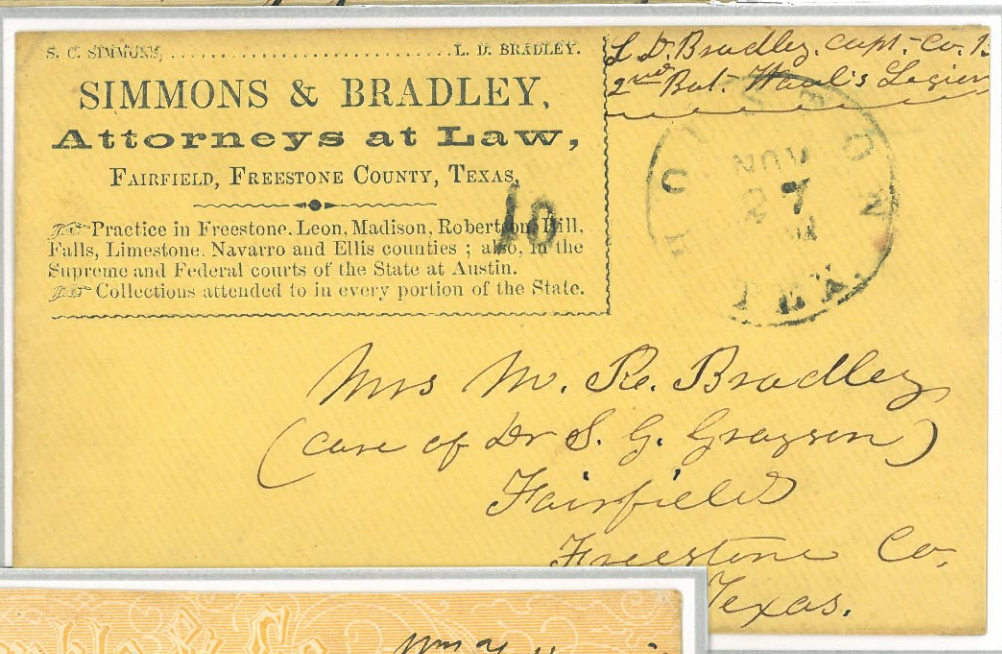 S. C. SIMMONS, ................................ L. D. BRADLEY.
SIMMONS & BRADLEY,
Attorneys at Law,
FAIRFIELD, FREESTONE COUNTY, TEXAS,
Practice in Freestone, Leon, Madison, Robertson, Hill,
Falls, Limestone, Navarro and Ellis counties ; also, in the
Supreme and Federal courts of the State at Austin.
Collections attended to in every portion of the State.
10
L. D. Bradley, Capt. Co.
2nd Bat. Waul's Legion
HOUSTON
NOV
27
TEX.
Mrs M. R. Bradley
(care of Dr S. G. Grayson)
Fairfield
Freestone Co.
Texas.